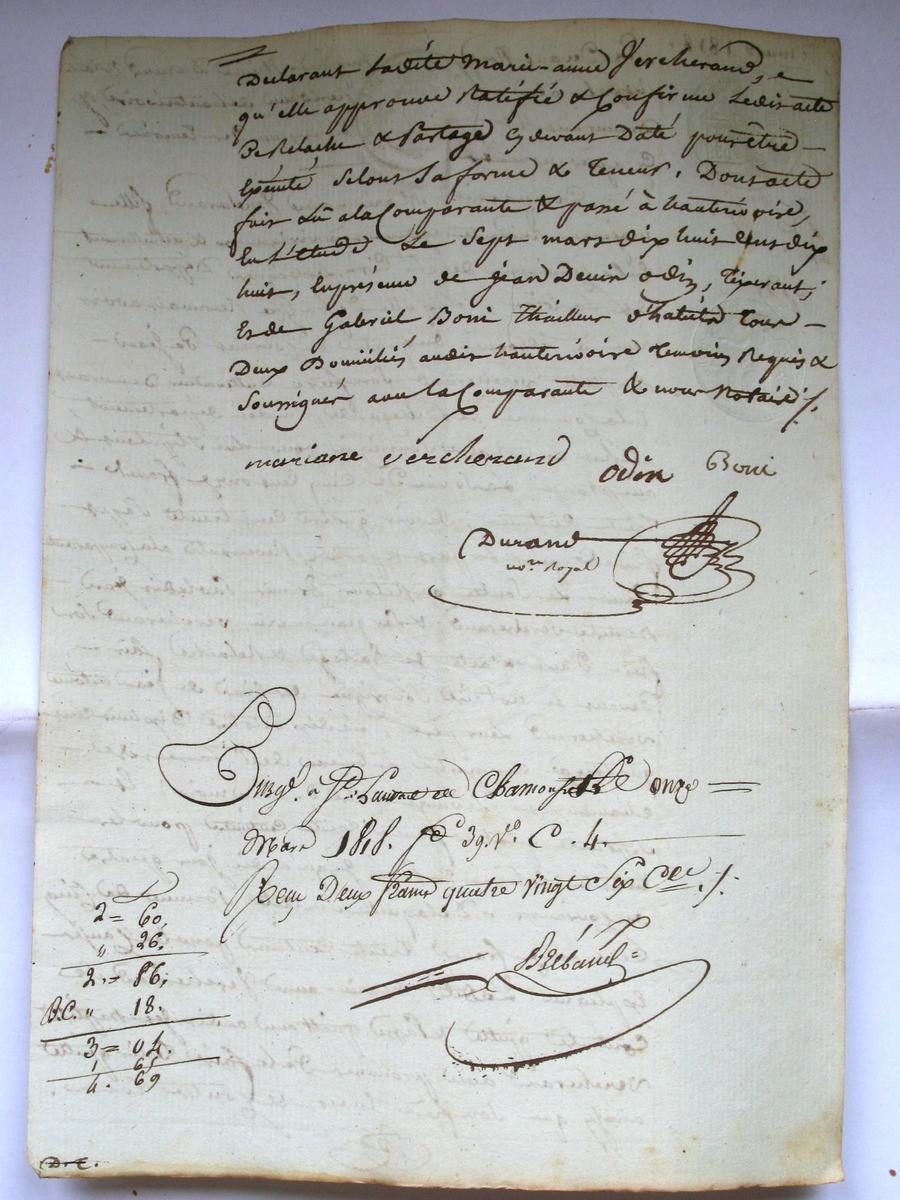 Declarant Ladite Marie-anne Vercherand,
qu'elle approuve Ratifie & Confirme Ledit acte
De Relache & Partage cy devant Daté pour être
Exécuté Selont Sa forme & Teneur, Dont acte
fait & Lû a la Comparante & passé à hauterivoire,
En L'étude Le Sept mars dix huit Cent dix
huit, En présence de jean Odin,
Et de Gabriel Boni Thailleur d'habits Tous
Deux Domiciliés audit hauterivoire Temoins Requis &
Soussignés avec la Comparante & nous Notaire ./.
mariane vercherand
Odin Boni
Durand
no.re Royal
Enregt. à St. Laurent de Chamousset Le onze
Mars 1818. fo 39. Vo. C. 4.
Reçu Deux francs quatre vingt Six C.es ./.
2 = 60.
" 26.
2 = 86.
D.C. " 18.
3 = 04.
1 65
4. 69
D.C.